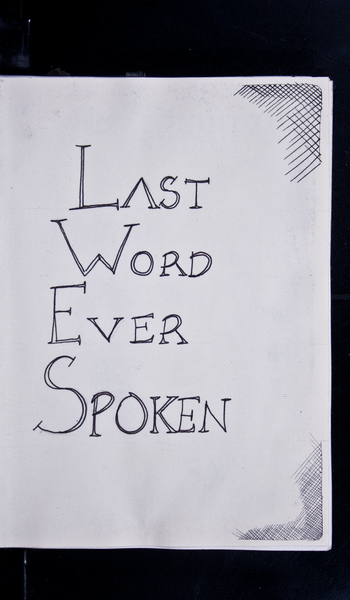 Last
Word
Ever
Spoken